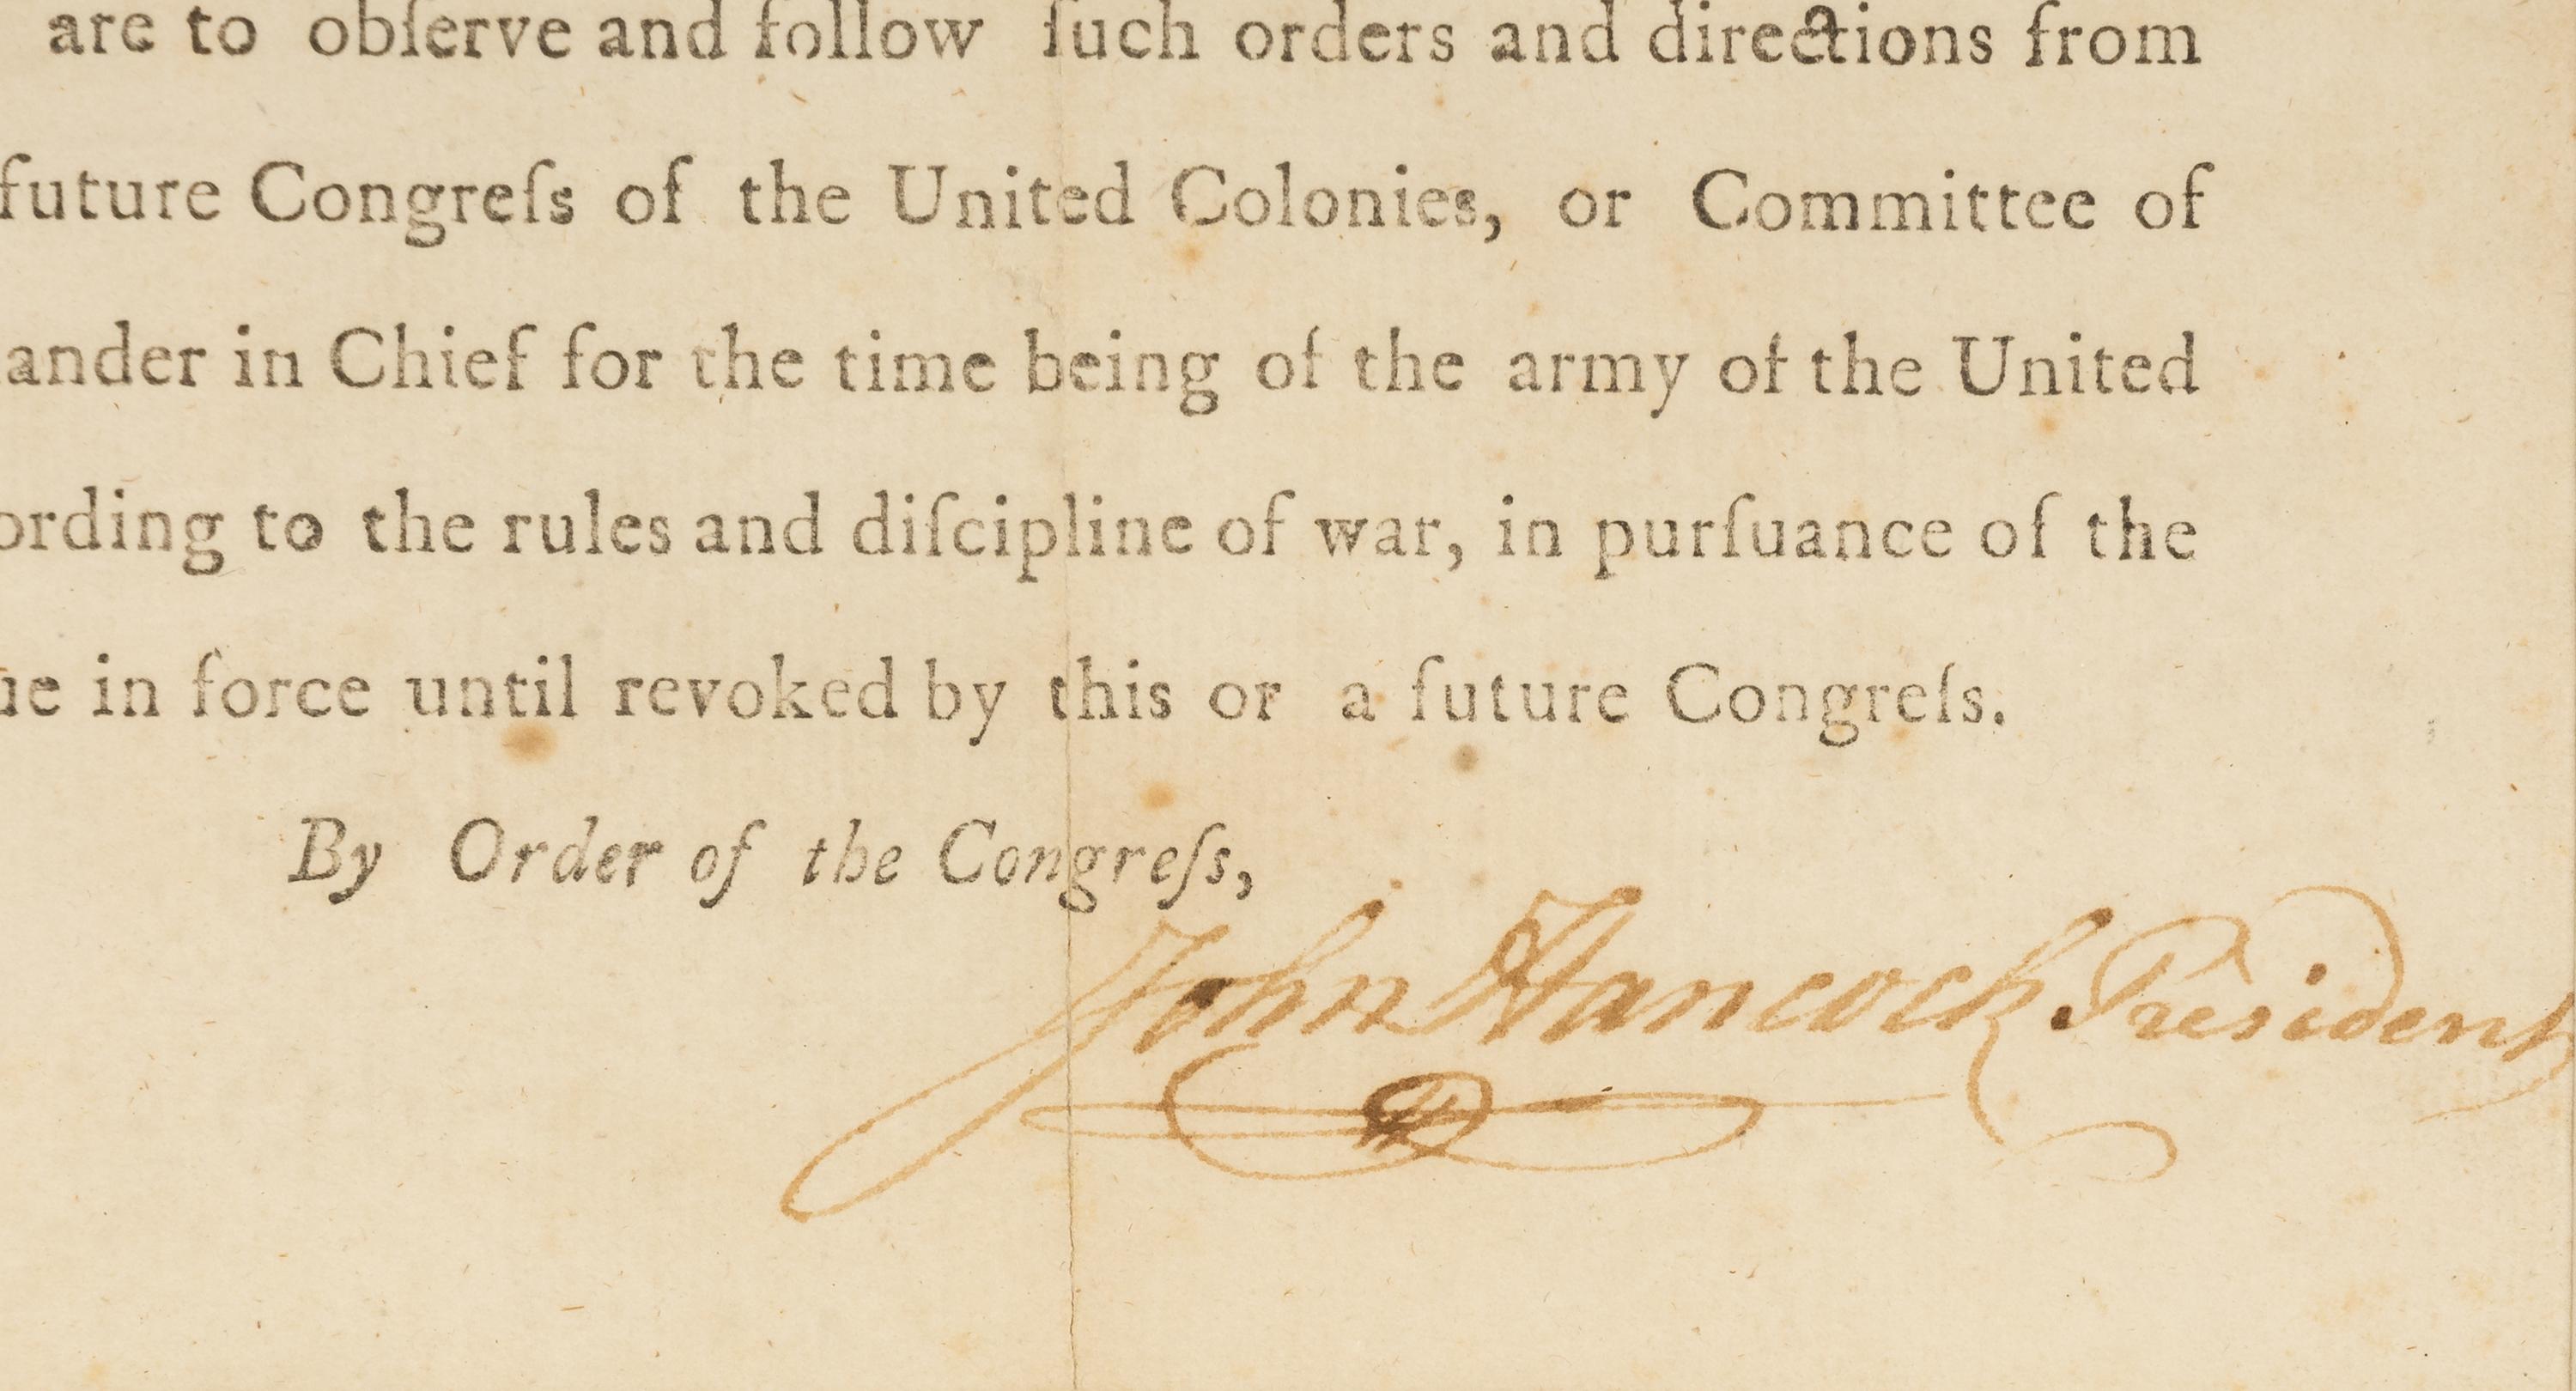 are to obſerve and follow ſuch orders and directions from
future Congreſs of the United Colonies, or Committee of
ander in Chief for the time being of the army of the United
ording to the rules and diſcipline of war, in purſuance of the
ue in force until revoked by this or a future Congreſs.
By Order of the Congreſs,
John Hancock President